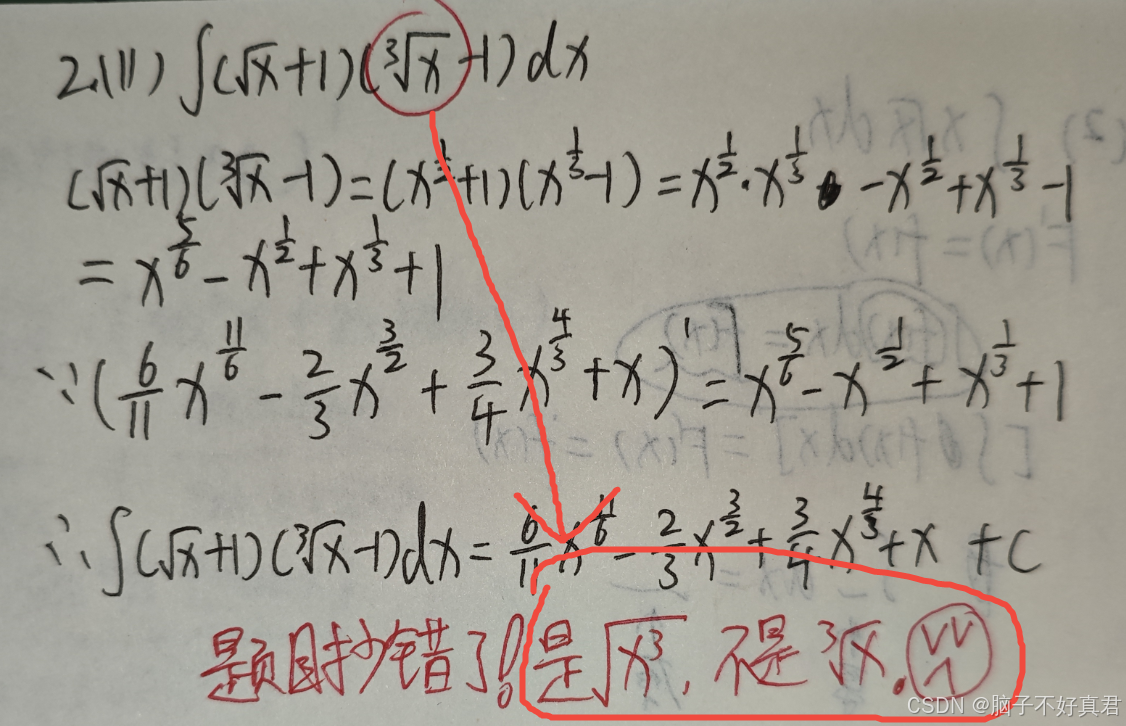 2.(11) ∫(√x+1)(∛x-1)dx
(√x+1)(∛x-1)=(x^{1/2}+1)(x^{1/3}-1)=x^{1/2}·x^{1/3}-x^{1/2}+x^{1/3}-1
=x^{5/6}-x^{1/2}+x^{1/3}+1
∵(6/11 x^{11/6}-2/3 x^{3/2}+3/4 x^{4/3}+x)'=x^{5/6}-x^{1/2}+x^{1/3}+1
∴∫(√x+1)(∛x-1)dx=6/11 x^{11/6}-2/3 x^{3/2}+3/4 x^{4/3}+x+C
题目抄错了!是√x³,不是∛x.
CSDN @脑子不好真君